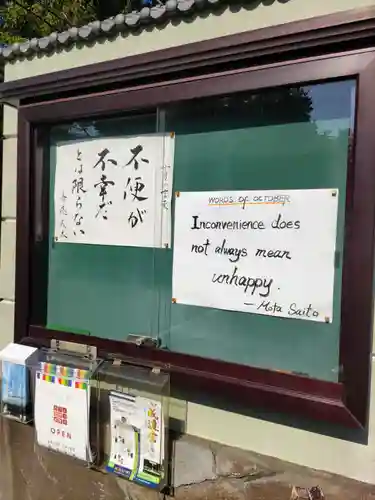 今月の言葉
不便が
不幸だ
とは限らない
斎藤茂太
WORDS of OCTOBER
Inconvenience does
not always mean
unhappy.
— Mota Saito
OPEN